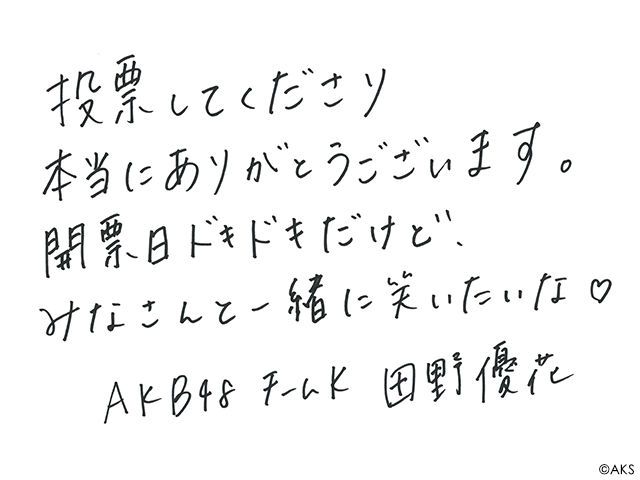 投票してくださり
本当にありがとうございます。
開票日ドキドキだけど、
みなさんと一緒に笑いたいな♡
AKB48 チームK 田野優花
©AKS